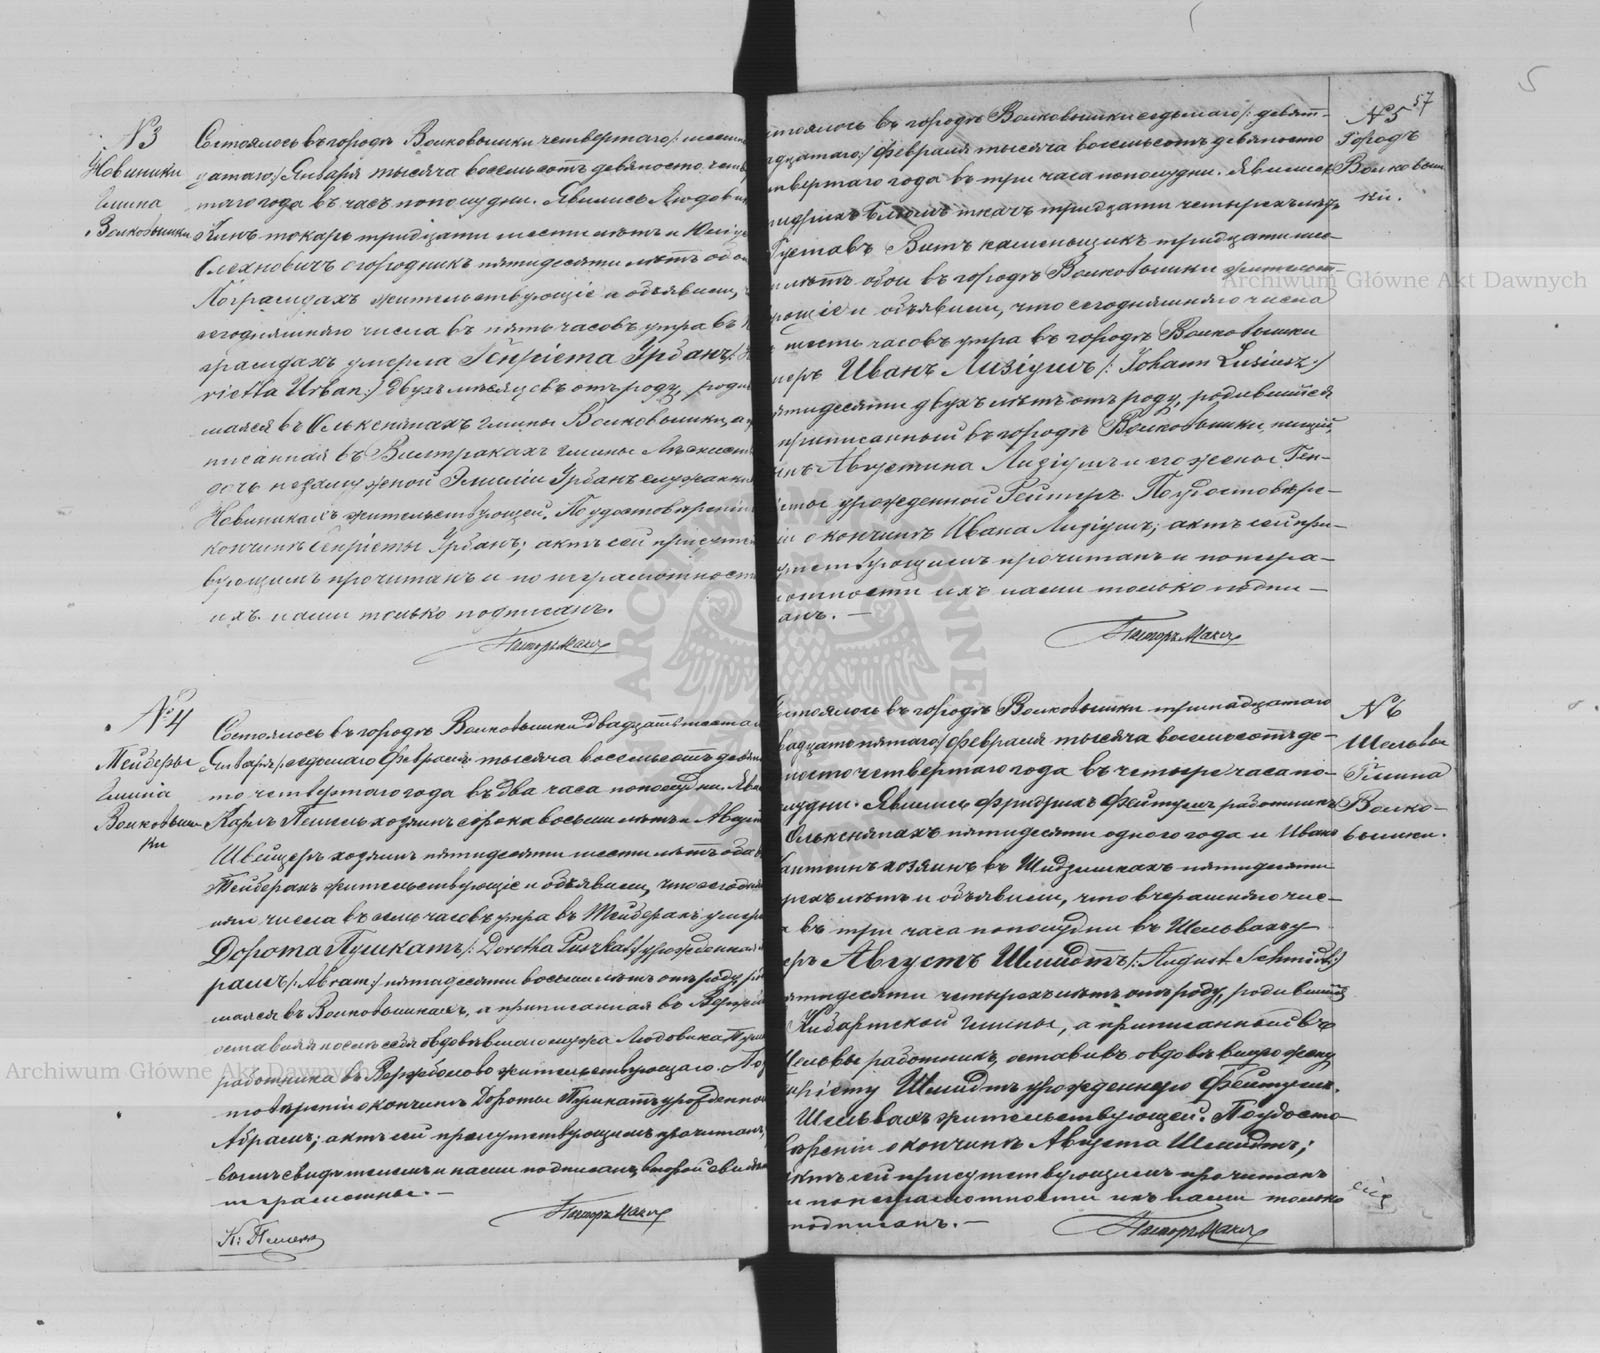 №3
Новиники
гмина
Волковышки
Состоялось въ городѣ Волковышки четвертаго/: шест
цатаго:/ Января тысяча восемьсотъ девяносто четв
таго года въ часъ пополудни. Явились Людови
Кинъ токарь тридцати шести лѣтъ и
Олехновичъ огородникъ пятидесяти лѣтъ обо
жительствующіе и объявили,
сегодняшняго числа въ пять часовъ утра въ
умерла Генріета Урбанъ/:
rietta Urban:/ двухъ мѣсяцевъ отъ роду, роди
шаяся въ Олькснянахъ гмины Волковышки, а
писанная въ гмины
дочь незамужней Эмиліи Урбанъ служанки
Новиникахъ жительствующей. По удостовѣреніи
кончинѣ Генріеты Урбанъ; актъ сей присутст
вующимъ прочитанъ и по неграмотност
ихъ нами только подписанъ.
Пасторъ
№4
Тейберы
гмина
Волковыш-
ки
Состоялось въ городѣ Волковышки двадцать шестаго
Января/седьмаго Февраля тысяча восемьсотъ девян
то четвертаго года въ два часа пополудни. Яви
Карлъ хозяинъ сорока восьми лѣтъ и Авгу
Швейцеръ хозяинъ пятидесяти шести лѣтъ оба в
Тейберахъ жительствующіе и объявили, что сегодня
няго числа въ семь часовъ утра въ Тейберахъ умер
Дорота Пушкатъ/: Dorotha Puszkat:/ урожденная
рамъ/: Abram:/ пятидесяти восьми лѣтъ отъ роду, ро
шаяся въ Волковышкахъ, а приписанная въ
оставивъ послѣ себя овдовѣвшаго мужа Людовика Пуш
работника въ Вержболово жительствующаго. По
товѣреніи о кончинѣ Дороты Пушкатъ урожденно
Абрамъ; актъ сей присутствующимъ прочитанъ,
вымъ свидѣтелемъ и нами подписанъ, второй свидѣт
неграмотный.—
Пасторъ
57
№5
Городъ
Волковыш
ки.
стоялось въ городѣ Волковышки седьмаго/: девят-
дцатаго:/ Февраля тысяча восемьсотъ девяносто
твертаго года въ три часа пополудни. Явились
идрихъ Блюмъ ткачъ тридцати четырехъ лѣтъ
Густавъ Витъ каменьщикъ тридцати ше-
и лѣтъ обои въ городѣ Волковышки жительст-
ующіе и объявили, что сегодняшняго числа
шесть часовъ утра въ городѣ Волковышки
меръ Иванъ Лизіусъ/: Johann Lusiusz:/
ятидесяти двухъ лѣтъ отъ роду, родившійся
приписанный въ городѣ Волковышки, нищій,
инъ Августина Лизіусъ и его жены Ген-
еты урожденной Рейтеръ. По удостовѣре-
іи о кончинѣ Ивана Лизіусъ; актъ сей при-
утствующимъ прочитанъ и по негра-
отности ихъ нами только подпи-
анъ.—
Пасторъ
№6
Шельвы
Гмина
Волко-
вышки.
остоялось въ городѣ Волковышки тринадцатаго
вадцать пятаго/ Февраля тысяча восемьсотъ де-
носто четвертаго года въ четыре часа по-
лудни. Явились Фридрихъ работникъ
Олькснянахъ пятидесяти одного года и Иванъ
хозяинъ въ Шидзишкахъ пятидесяти
рехъ лѣтъ и объявили, что вчерашняго чис-
а въ три часа пополудни въ Шельвахъ у
еръ Августъ Шмидтъ/: August Schmidt:/
ятидесяти четырехъ лѣтъ отъ роду, родившійся
Кибартской гмины, а приписанный въ
Шельвы работникъ, оставивъ овдовѣвшую жену
Шмидтъ урожденную
Шельвахъ жительствующей. По удосто-
вѣреніи о кончинѣ Августа Шмидтъ;
актъ сей присутствующимъ прочитанъ
и по неграмотности ихъ нами только
подписанъ.—
Пасторъ
Archiwum Główne Akt Dawnych
Archiwum Główne Akt Dawnych